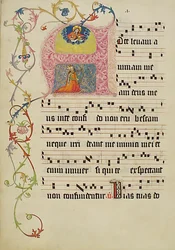 A D te leuaui a
nimam me
am deus me
us inte confi do non eru bescam
neque irri deant me inimici mei et
enim uniuer si qui te expectant
non confundentur Uias tuas do